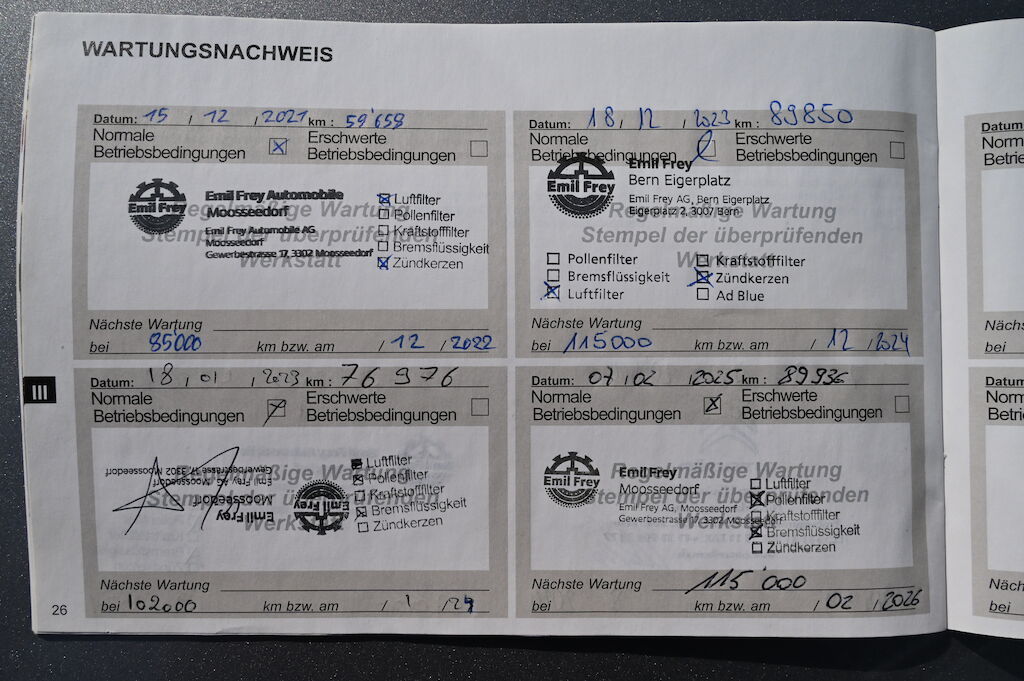 WARTUNGSNACHWEIS
Datum: 15 / 12 / 2021 km : 59'659
Normale
Betriebsbedingungen
Erschwerte
Betriebsbedingungen
Emil Frey
Emil Frey Automobile
Moosseedorf
Emil Frey Automobile AG
Moosseedorf
Gewerbestrasse 17, 3302 Moosseedorf
Regelmäßige Wartung
Stempel der überprüfenden
Werkstatt
Luftfilter
Pollenfilter
Kraftstofffilter
Bremsflüssigkeit
Zündkerzen
Nächste Wartung
bei 85000 km bzw. am / 12 / 2022
Datum: 18 / 12 / 2023 km : 89850
Normale
Betriebsbedingungen
Erschwerte
Betriebsbedingungen
Emil Frey
Emil Frey
Bern Eigerplatz
Emil Frey AG, Bern Eigerplatz
Eigerplatz 2, 3007 Bern
Regelmäßige Wartung
Stempel der überprüfenden
Werkstatt
Pollenfilter
Bremsflüssigkeit
Luftfilter
Kraftstofffilter
Zündkerzen
Ad Blue
Nächste Wartung
bei 115000 km bzw. am / 12 / 2024
III
Datum: 18 / 01 / 2023 km : 76 976
Normale
Betriebsbedingungen
Erschwerte
Betriebsbedingungen
Emil Frey
Emil Frey
Moosseedorf
Emil Frey AG, Moosseedorf
Gewerbestrasse 17, 3302 Moosseedorf
Regelmäßige Wartung
Stempel der überprüfenden
Werkstatt
Luftfilter
Pollenfilter
Kraftstofffilter
Bremsflüssigkeit
Zündkerzen
Nächste Wartung
bei 102000 km bzw. am / 1 / 24
Datum: 07 / 02 / 2025 km : 89936
Normale
Betriebsbedingungen
Erschwerte
Betriebsbedingungen
Emil Frey
Emil Frey
Moosseedorf
Emil Frey AG, Moosseedorf
Gewerbestrasse 17, 3302 Moosseedorf
Regelmäßige Wartung
Stempel der überprüfenden
Werkstatt
Luftfilter
Pollenfilter
Kraftstofffilter
Bremsflüssigkeit
Zündkerzen
Nächste Wartung 115'000
bei km bzw. am / 02 / 2026
26
Datum
bei
Datum:
bei